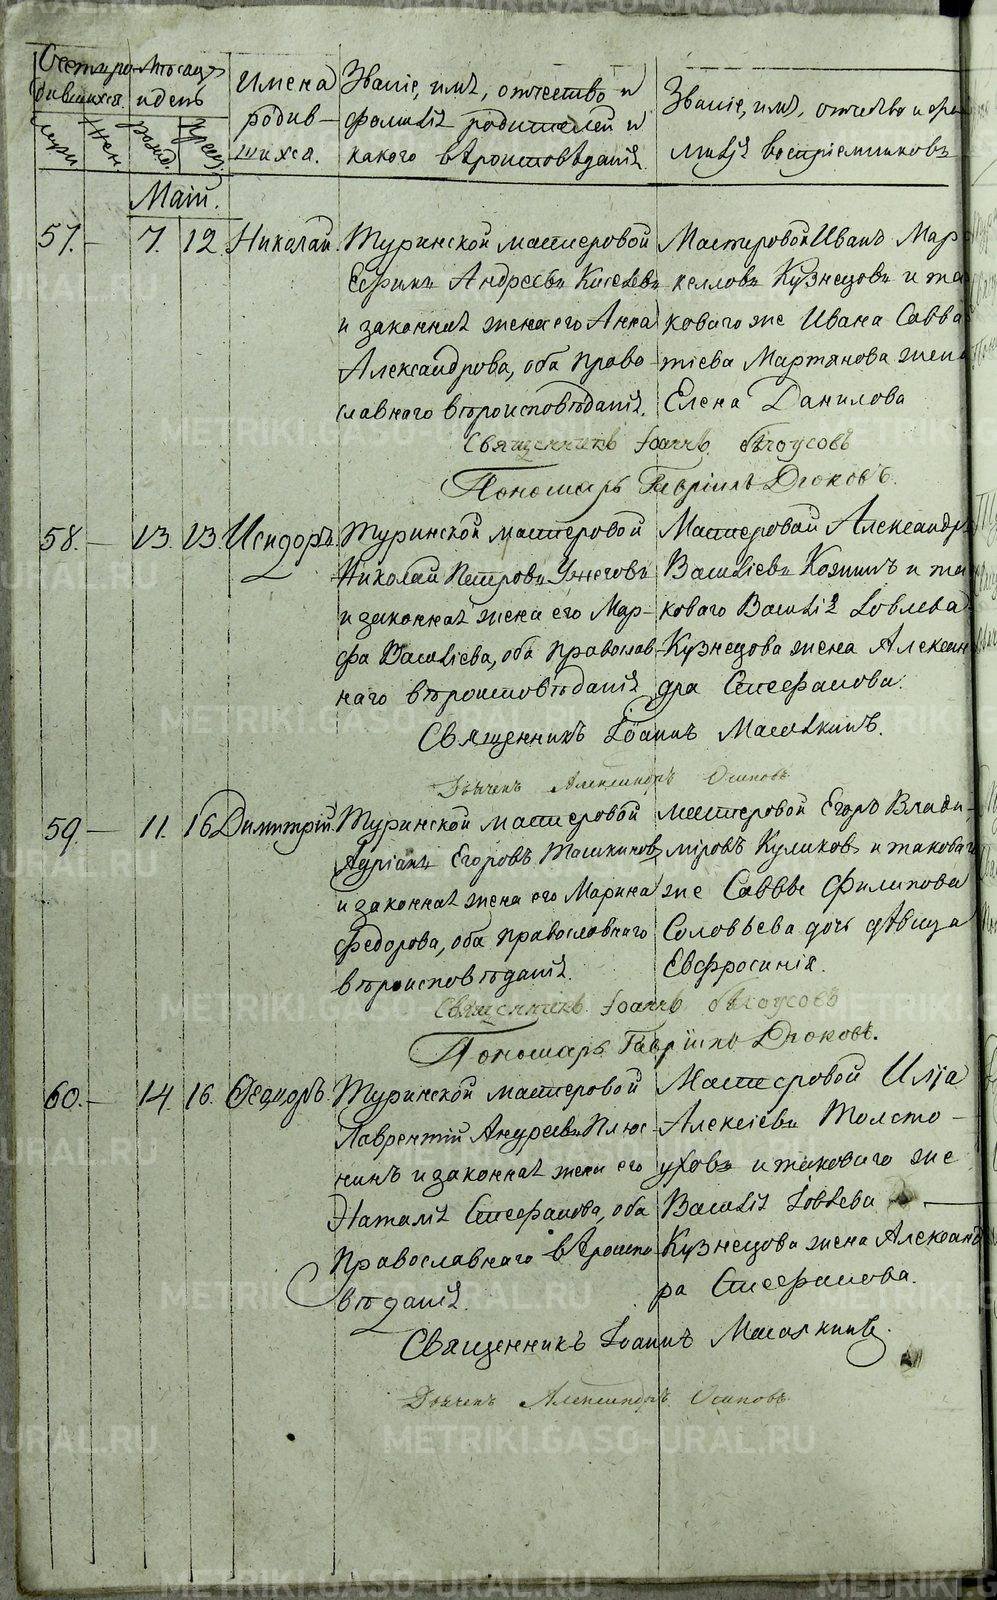 METRIKI.GASO-URAL.RU
Счетъ ро-
дившихся.
Мѣсяцъ
и день
Имена
родив-
шихся.
Званіе, имя, отчество и
фамилія родителей и
какого вѣроисповѣданія.
Званіе, имя, отчество и фа-
милія воспріемниковъ
Муж.
Жен.
рожд.
крещ.
Маій.
57. — 7. 12. Николай.
Туринской мастеровой
Андреевъ Киселевъ
и законная жена его Анна
Александрова, оба право-
славнаго вѣроисповѣданія.
Мастеровой Иванъ Мар-
келловъ Кузнецовъ и та-
коваго же Ивана Савва-
тіева Мартянова жена
Елена Данилова
Священникъ Іоаннъ Бѣлоусовъ
Пономарь Гавріилъ Дюковъ.
58. — 13. 13. Исидоръ.
Туринской мастеровой
Николай Петровъ
и законная жена его Мар-
фа Васильева, оба православ-
наго вѣроисповѣданія
Мастеровой Александръ
Васильевъ и та-
коваго Василія Іовлева
Кузнецова жена Алексан-
дра Стефанова.
Священникъ Іоаннъ
Дьячекъ Александръ Осиповъ
59. — 11. 16. Димитрій.
Туринской мастеровой
Адріанъ Егоровъ Ташкиновъ
и законная жена его Марина
Федорова, оба православнаго
вѣроисповѣданія.
мастеровой Егоръ Влади-
міровъ Куликовъ и таковаго
же Саввы Филипова
Соловьева дочь дѣвица
Евфросинія.
Священникъ Іоаннъ Бѣлоусовъ
Пономарь Гавріилъ Дюковъ.
60. — 14. 16. Феодоръ.
Туринской мастеровой
Лаврентій Андреевъ Плюс-
нинъ и законная жена его
Наталія Стефанова, оба
православнаго вѣроиспо-
вѣданія.
Мастеровой Илія
Алексіевъ Толсто-
уховъ и таковаго же
Василія Іовлева
Кузнецова жена Александ-
ра Стефанова.
Священникъ Іоаннъ
Дьячекъ Александръ Осиповъ